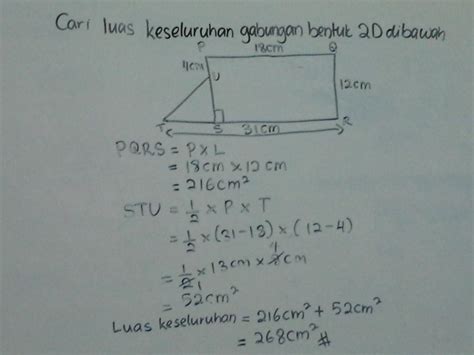 Cari luas keseluruhan gabungan bentuk 2D dibawah
P 18cm Q
4cm
U
12cm
T S 31cm R
PQRS = P x L
= 18cm x 12 cm
= 216cm²
STU = 1/2 x P x T
= 1/2 x (31-18) x (12-4)
= 1/2 1 x 13cm x 8 4 cm
= 52cm²
Luas keseluruhan = 216cm² + 52cm²
= 268cm² #